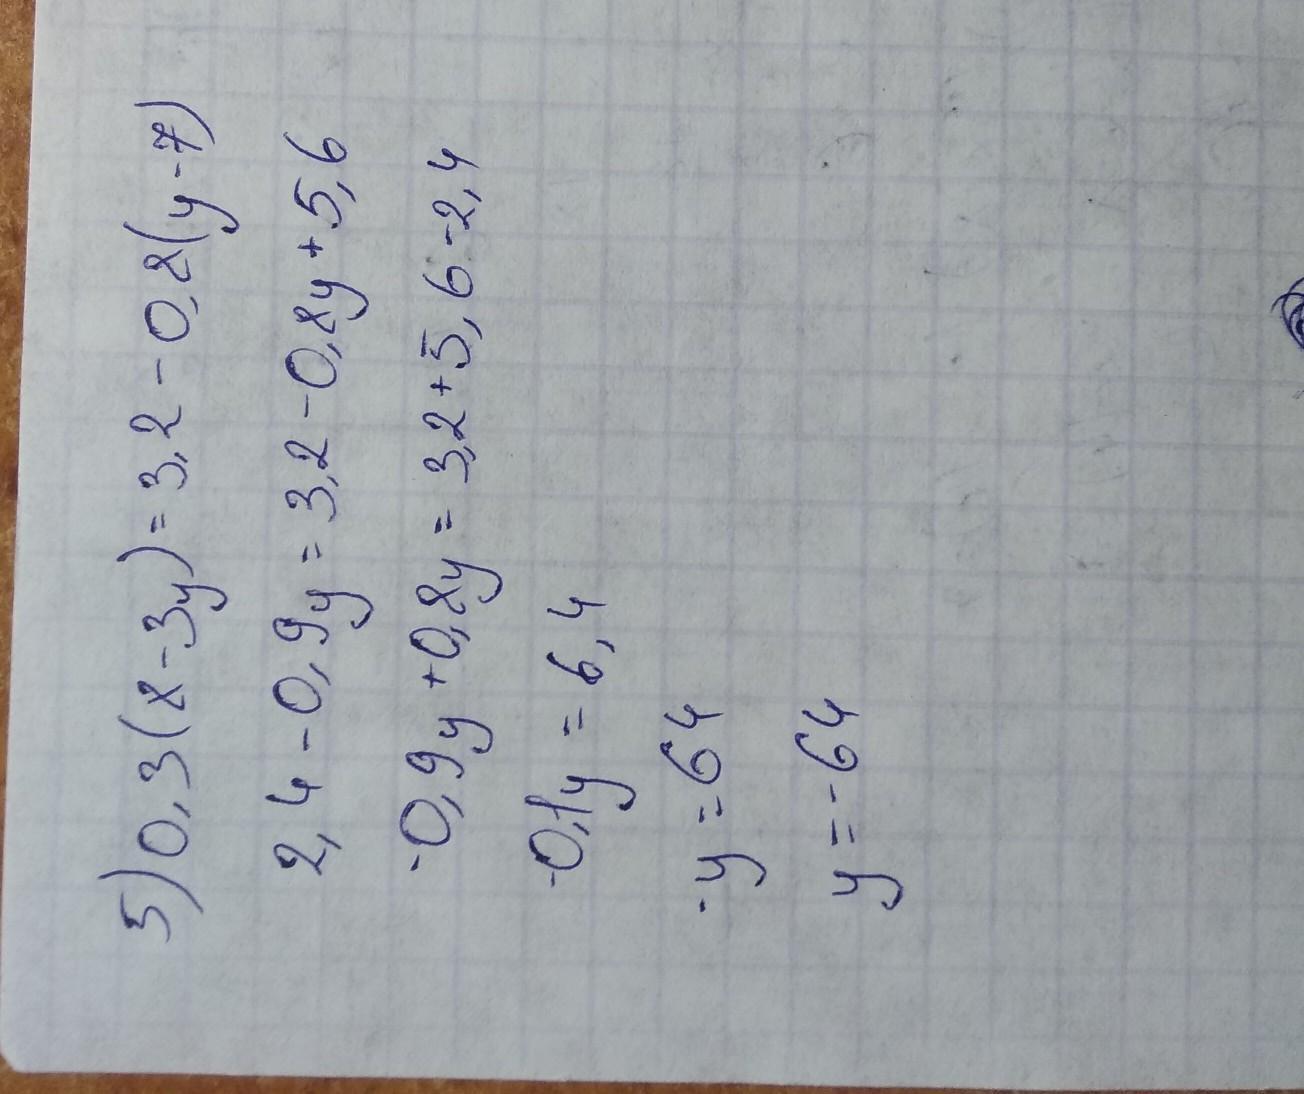 5) 0,3(8-3y)=3,2-0,8(y-7)
2,4-0,9y=3,2-0,8y+5,6
-0,9y+0,8y=3,2+5,6-2,4
-0,1y=6,4
-y=64
y=-64